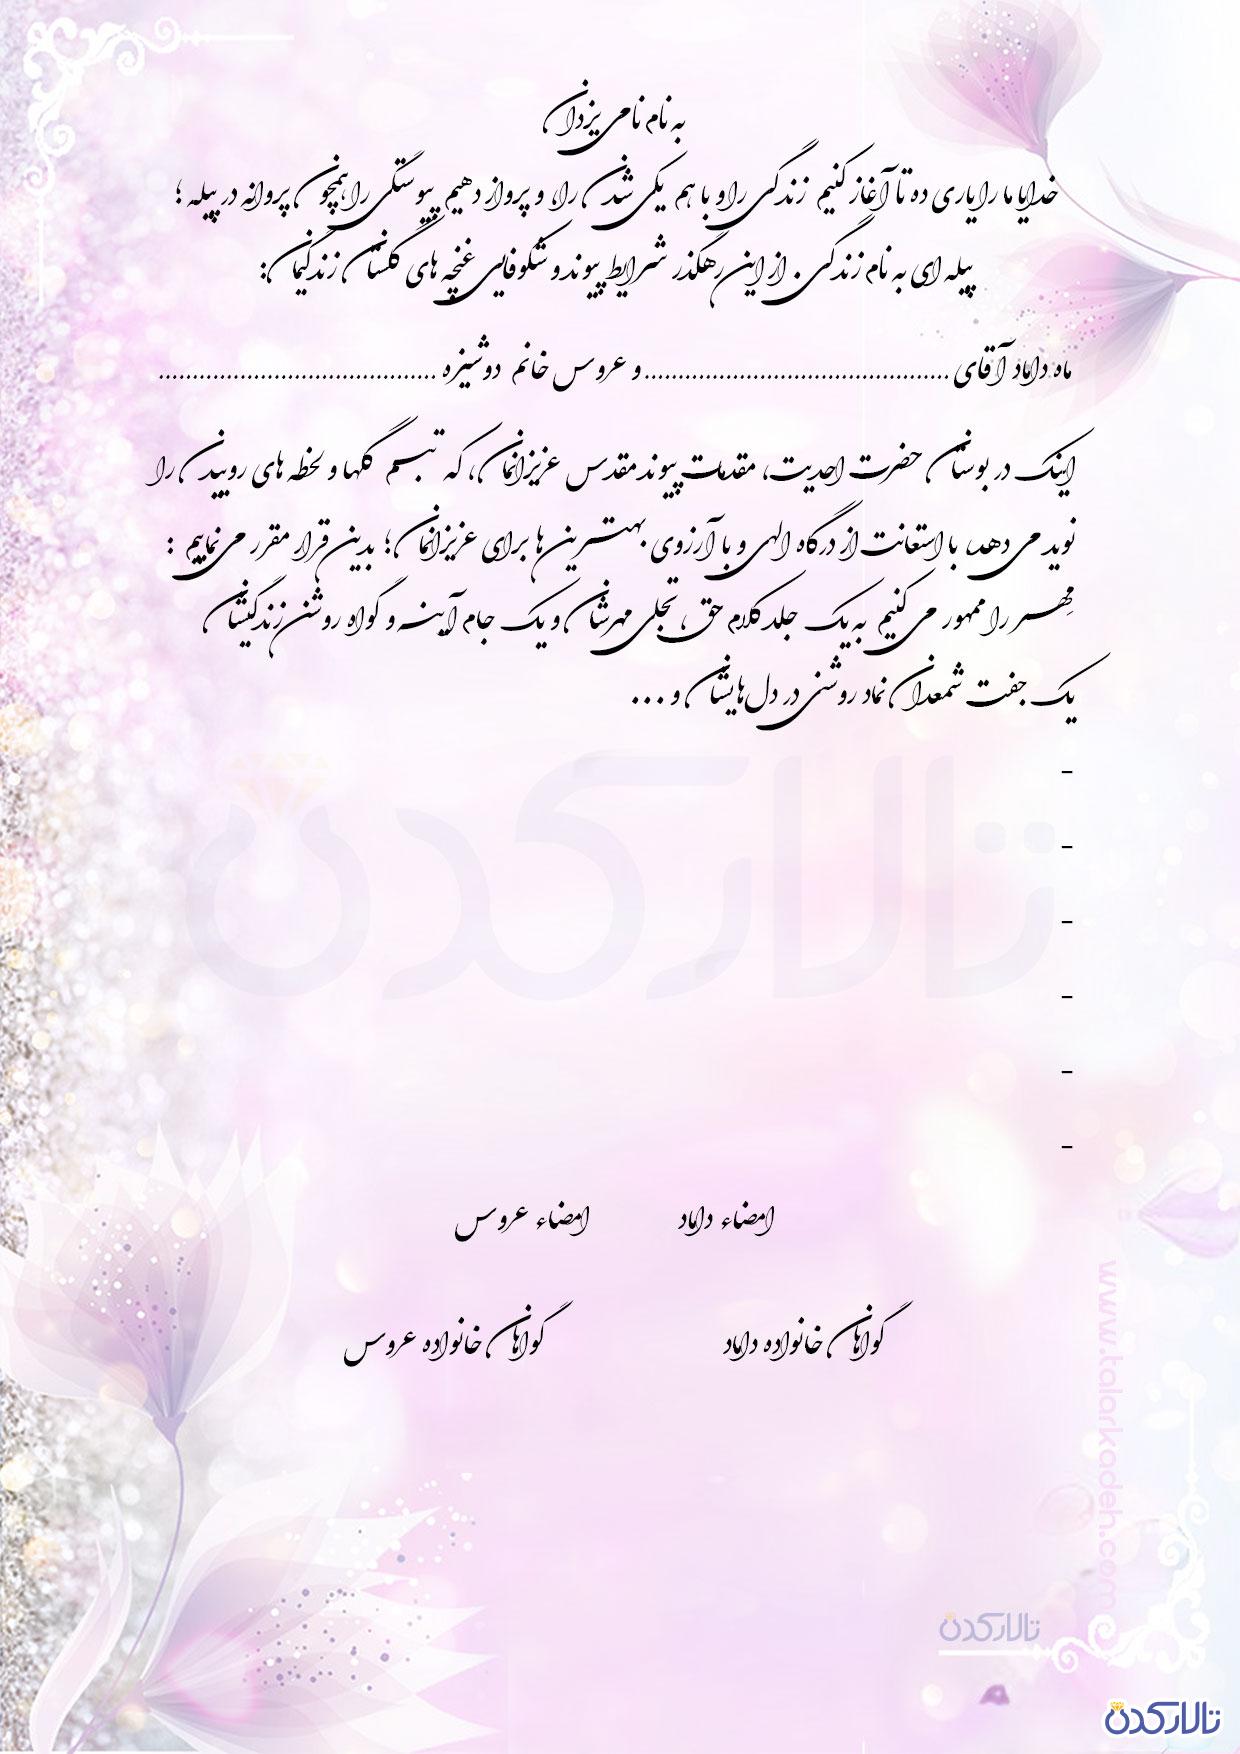 به نام نامی یزدان
خدایا ما را یاری ده تا آغاز کنیم زندگی را و با هم یکی شدن را، و پرواز دهیم پیوستگی را همچون پروانه در پیله ؛
پیله ای به نام زندگی . از این رهگذر شرایط پیوند و شکوفایی غنچه های گلستان زندگیمان:
ماه داماد آقای ............................................. و عروس خانم دوشیزه .........................................
اینک در بوستان حضرت احدیت، مقدمات پیوند مقدس عزیزانمان، که تبسم گلها و لحظه های روییدن را
نوید می دهد، با استعانت از درگاه الهی و با آرزوی بهترین‌ها برای عزیزانمان؛ بدین قرار مقرر می‌نماییم :
مِهـر را ممهور می‌کنیم به یک جلد کلام حق، تجلی مهرشان و یک جام آینه و گواه روشن زندگیشان
یک جفت شمعدان نماد روشنی در دل‌هایشان و ...
-
-
-
-
-
-
امضاء داماد امضاء عروس
گواهان خانواده داماد گواهان خانواده عروس
تالارکده
www.talarkadeh.com
تالارکده
تالارکده